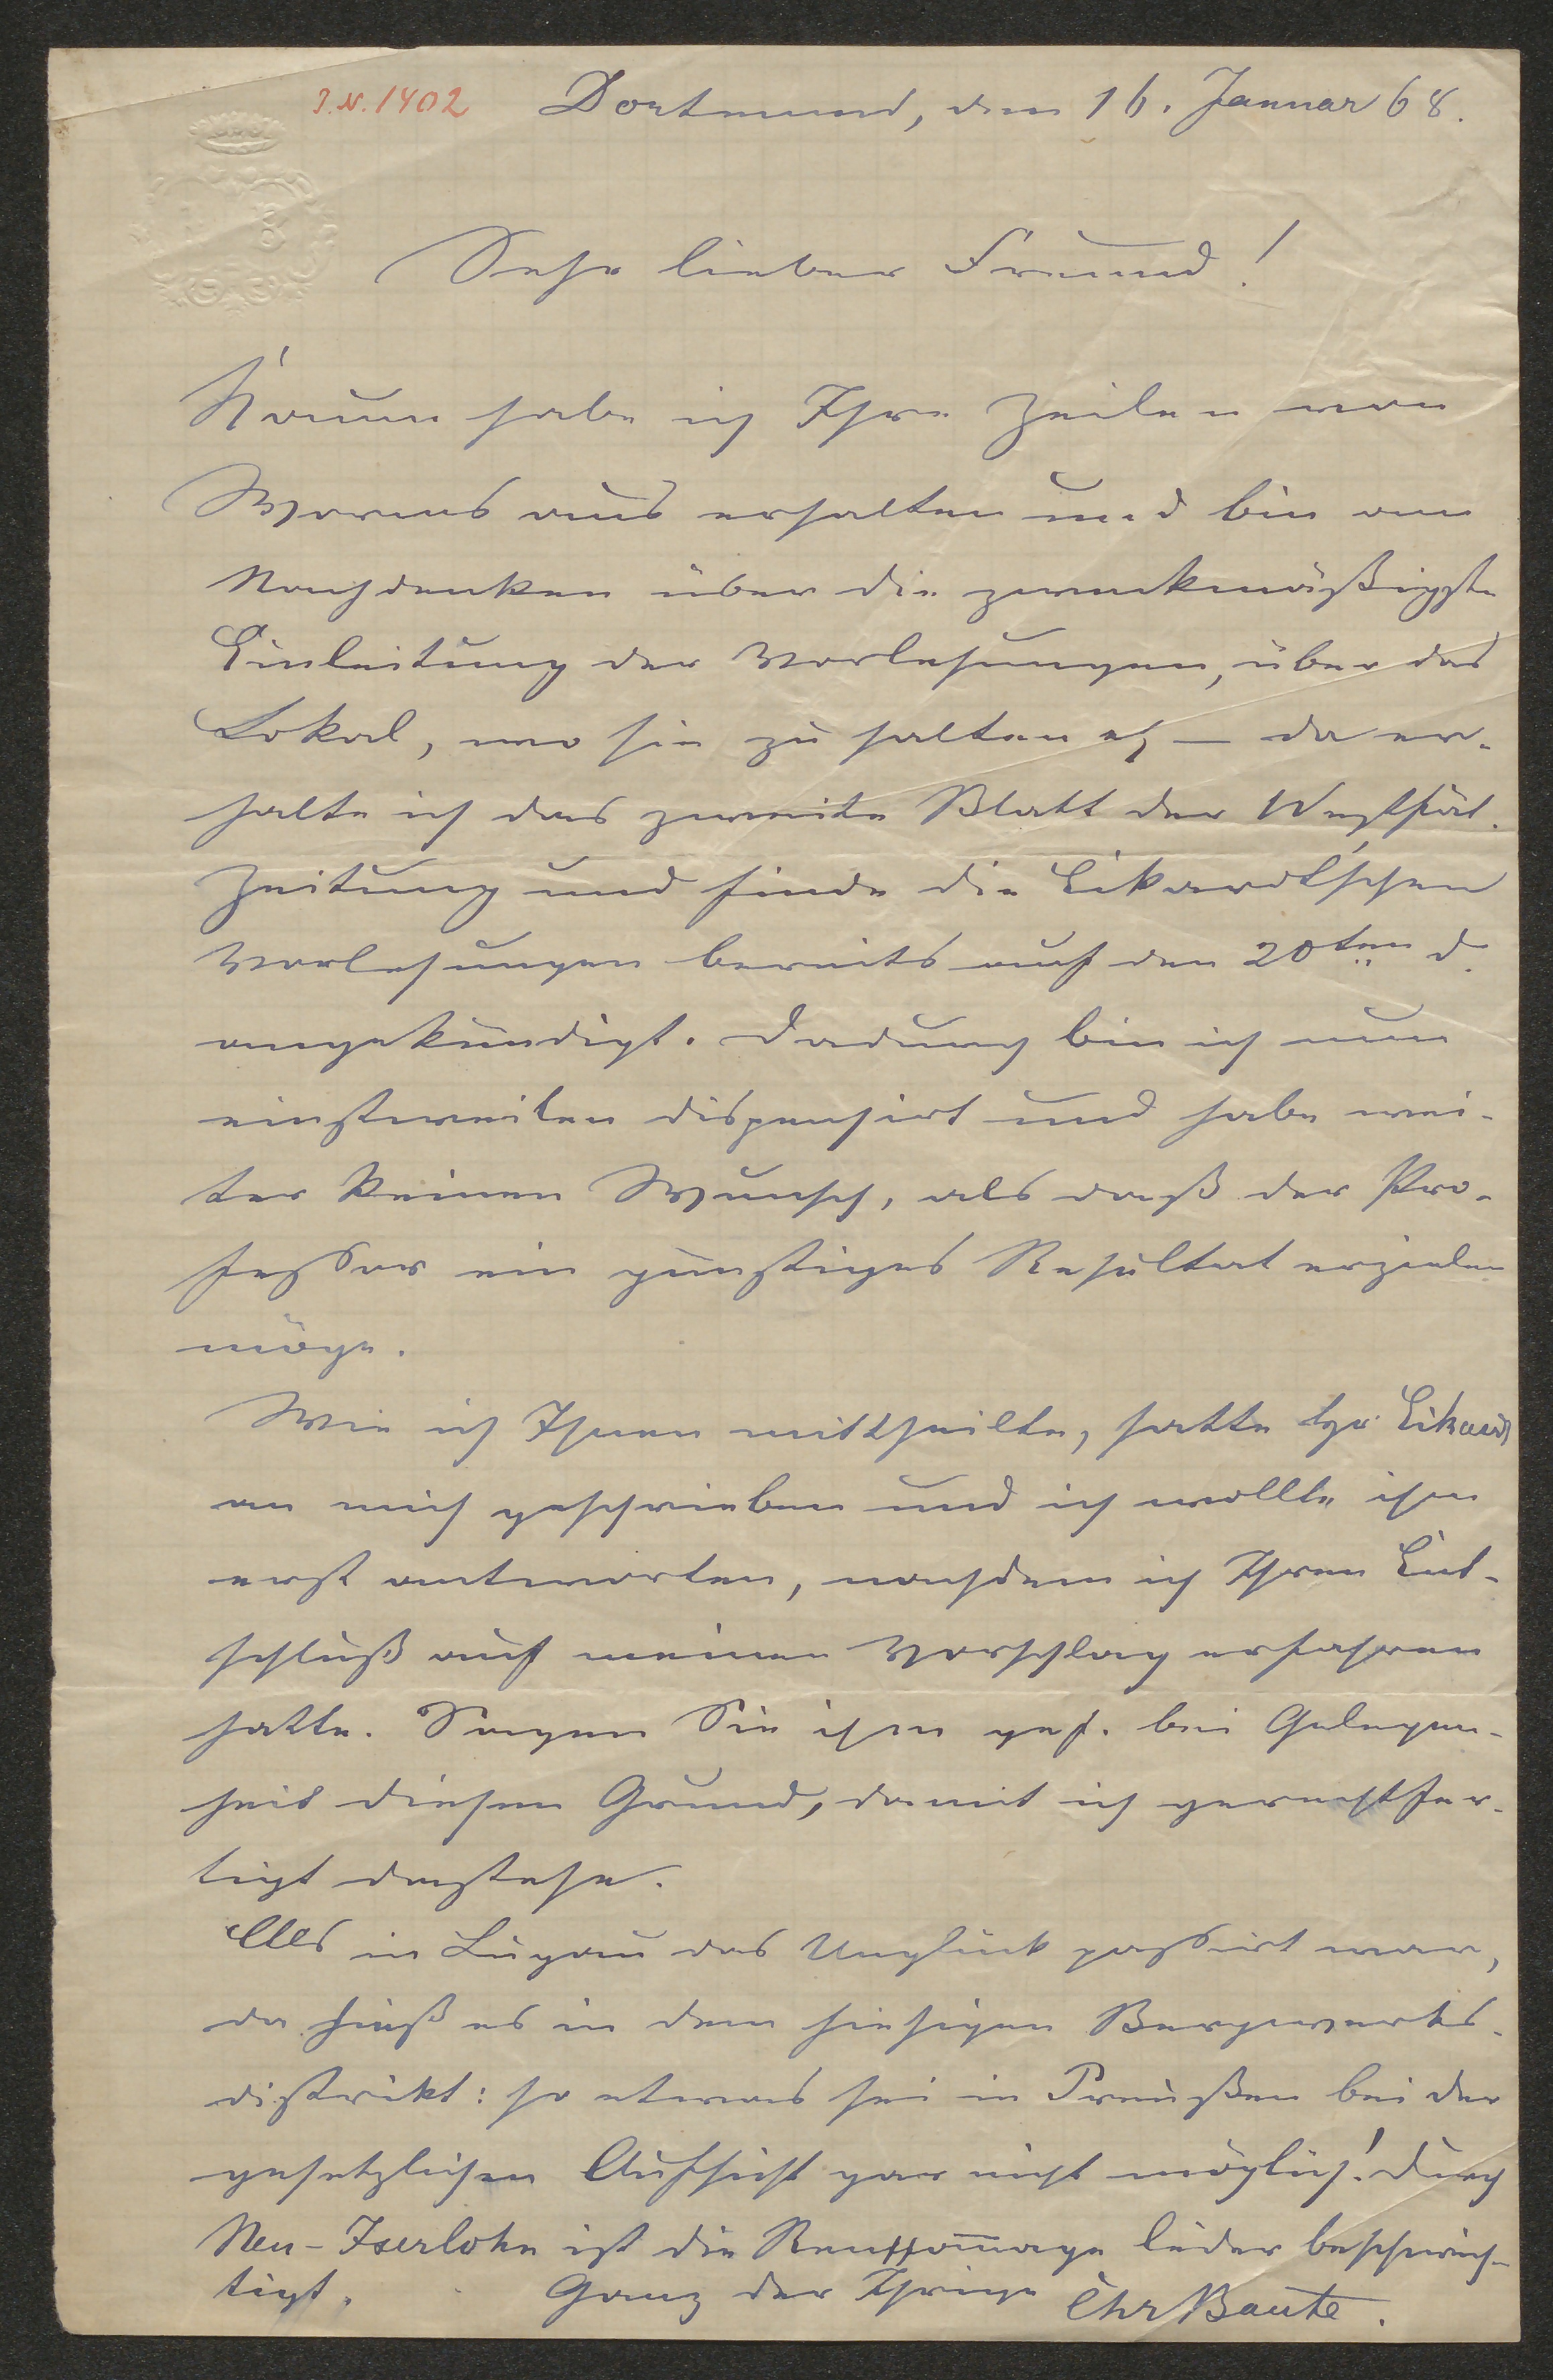 J.N. 1402 Dortmund, den 16. Januar 68.
Sehr lieber Freund!
Kaum habe ich Ihre Zeilen von
Worms aus erhalten und bin am
Nachdenken über die zweckmäßigste
Einleitung der Vorlesungen, über das
Lokal, wo sie zu halten etc – da er-
halte ich das zweite Blatt der Westfäl.
Zeitung und finde die Eckardt'schen
Vorlesungen bereits auf den 20ten d.
angekündigt. Dadurch bin ich nun
einstweilen dispensirt und habe wei-
ter keinen Wunsch, als daß der Pro-
fessor ein günstiges Resultat erzielen
möge.
Wie ich Ihnen mittheilte, hatte Hr. Eckardt
an mich geschrieben und ich wollte ihm
erst antworten, nachdem ich Ihren Ent-
schluß auf meinen Vorschlag erfahren
hatte. Sagen Sie ihm gef. bei Gelegen-
heit diesen Grund, damit ich gerechtfer-
tigt dastehe.
Als in Lugau das Unglück passirt war,
da hieß es in dem hiesigen Bergwerks-
distrikt: so etwas sei in Preußen bei der
gesetzlichen Aufsicht gar nicht möglich! Durch
Neu-Iserlohn ist die Renommage leider beschwich-
tigt. Ganz der Ihrige Chr Baute.